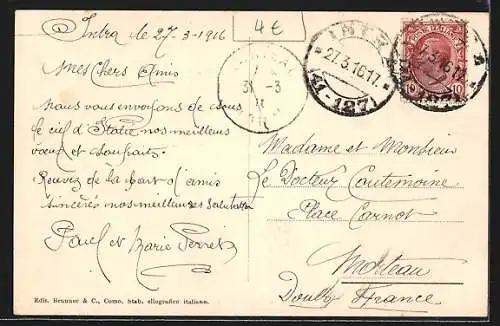 Intra le 27-3-1916
4€
Mes Chers Amis
Nous vous envoyons de sous
le ciel d'Italie nos meilleurs
vœux et souhaits.
Recevez de la part d'amis
sincères nos meilleures salutations
Paul et Marie Perret
Madame et Monsieur
Le Docteur Coutemoine
Place Carnot
Morteau
Doubs France
INTRA
27.3.16.17.
(41-187)
31-3
POSTE ITALIANE
10 10
Edit. Brunner & C., Como. Stab. eliografico italiano.